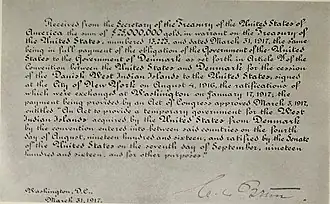 Received from the Secretary of the Treasury of the United States of
America the sum of $25,000,000 gold, in warrant on the Treasury
of the United States, numbered and dated March 31, 1917, the same
being in full payment of the obligation of the Government of the United
States to the Government of Denmark as set forth in Article 5 of the
Convention between the United States and Denmark for the cession
of the Danish West Indian Islands to the United States, signed
at the City of New York on August 4, 1916, the ratifications of
which were exchanged at Washington on January 17, 1917; the
payment being provided by an Act of Congress approved March 3, 1917,
entitled "An Act to provide a temporary government for the West
Indian Islands acquired by the United States from Denmark
by the convention entered into between said countries on the fourth
day of August, nineteen hundred and sixteen, and ratified by the Senate
of the United States on the seventh day of September, nineteen
hundred and sixteen, and for other purposes."
Washington, D.C.,
March 31, 1917.